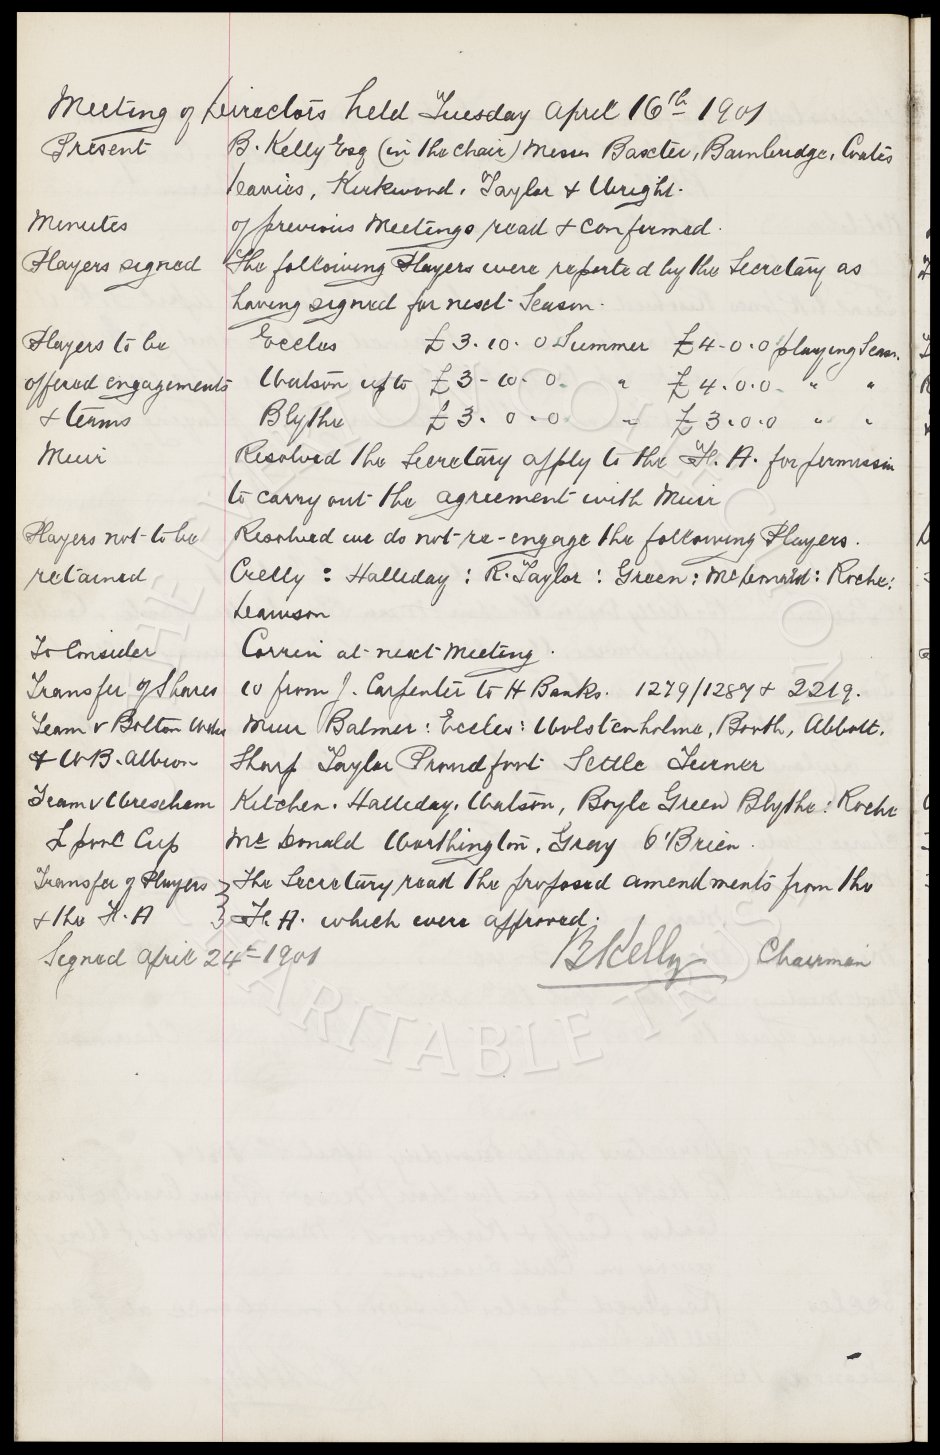 Meeting of Directors held Tuesday April 16th 1901
Present B. Kelly Esq (in the chair) Messrs Baxter, Bainbridge, Coates
Davies, Kirkwood, Taylor & Wright.
Minutes of previous Meetings read & confirmed.
Players signed The following Players were reported by the Secretary as
having signed for next Season.
Players to be Eccles £3.10.0 Summer £4-0.0 playing Seas.
offered engagements Watson up to £3-10-0. " £4.0.0 " "
& terms Blythe £3.0.0 " £3.0.0 " "
Muir Resolved the Secretary apply to the F.A. for permission
to carry out the agreement with Muir
Players not to be Resolved we do not re-engage the following Players.
retained Crelly : Halliday : R. Taylor : Green : McDonald : Roche :
Dawson
To Consider Corrin at next Meeting.
Transfer of Shares 10 from J. Carpenter to H Banks. 1279/1287 & 2219.
Team v Bolton Wdrs Muir Balmer : Eccles : Wolstenholme, Booth, Abbott.
& W B. Albion Sharp Taylor Proudfoot Settle Turner
Team v Wrexham Kitchen. Halliday. Watson, Boyle Green Blythe : Roche
L'pool Cup McDonald Worthington. Gray O'Brien.
Transfer of Players } The Secretary read the proposed amendments from the
& the F. A } F. A. which were approved.
Signed April 24th 1901 B Kelly Chairman
THE EVERTON COLLECTION
CHARITABLE TRUST